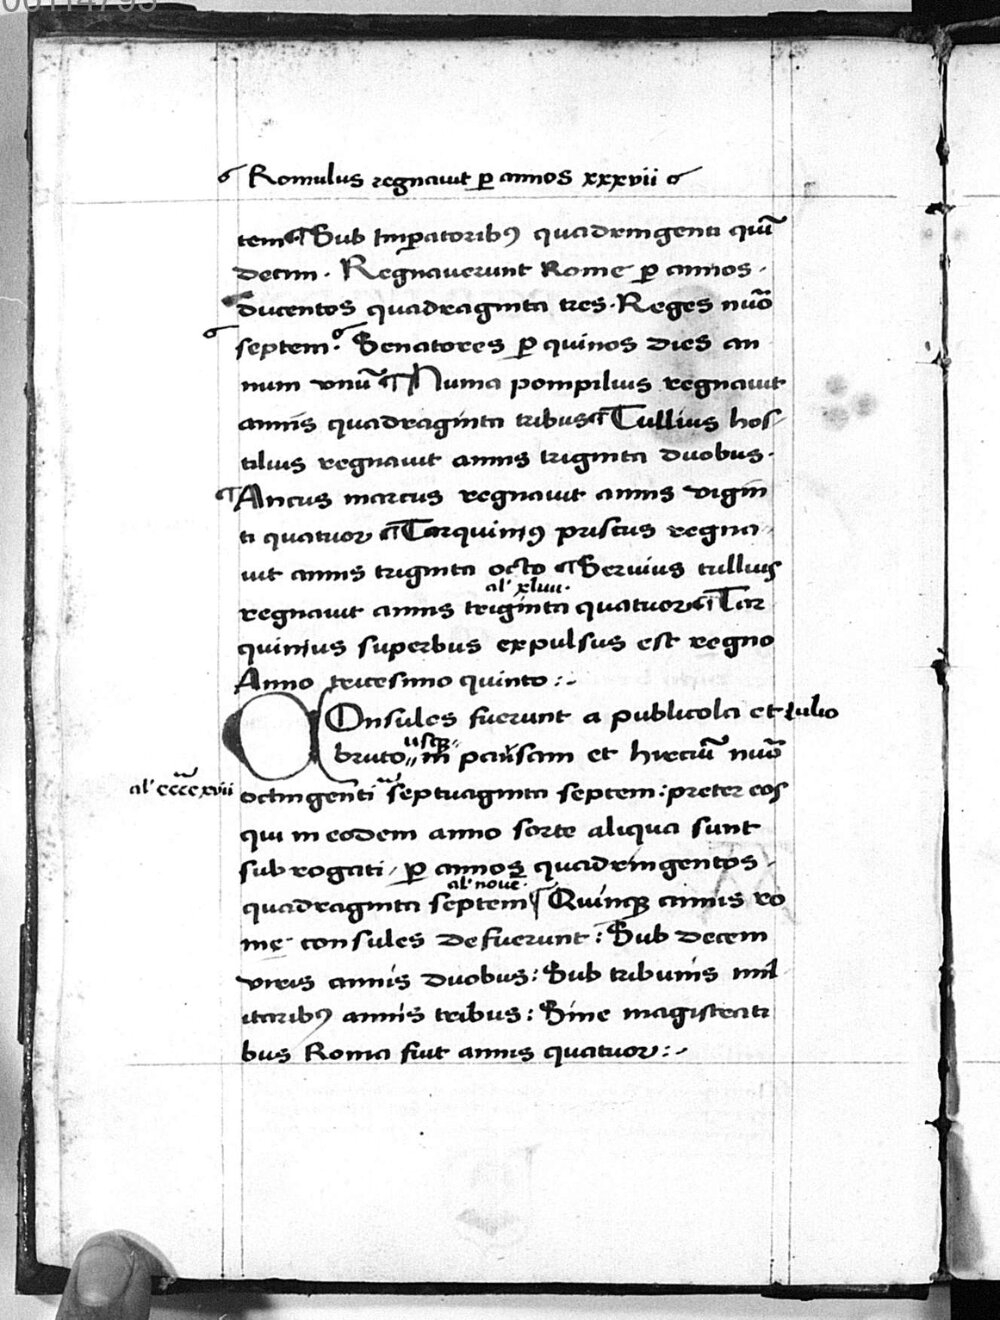 00114793
Romulus regnauit ꝑ annos xxxvii
tem ¶ Sub Imꝑatoribꝰ quadringenti quī
decim · Regnauerunt Rome ꝑ annos ·
ducentos quadraginta tres · Reges nūo
septem · Senatores ꝑ quinos dies an
num vnū ¶ Numa pompilius regnauit
annis quadraginta tribus ¶ Tullius hos
tilius regnauit annis triginta duobus ·
¶ Ancus marcus regnauit annis vigin
ti quatuor ¶ Tarquiniꝰ priscus regna
uit annis triginta octo ¶ Seruius tullius
al' xliiii ·
regnauit annis triginta quatuor ¶ Tar
quinius superbus expulsus est regno
Anno tricesimo quinto :-
COnsules fuerunt a publicola et iulio
usqꝫ
bruto in pansam et hirciū nūo
al' ccccxvii
octingenti septuaginta septem : preter eos
qui in eodem anno sorte aliqua sunt
subrogati / ꝑ annos quadringentos
al' noue ·
quadraginta septem ¶ Quinqꝫ annis ro
mę consules defuerunt : Sub decem
viris annis duobus : Sub tribunis mil
itaribꝰ annis tribus : Sine magistrati
bus Roma fuit annis quatuor :-